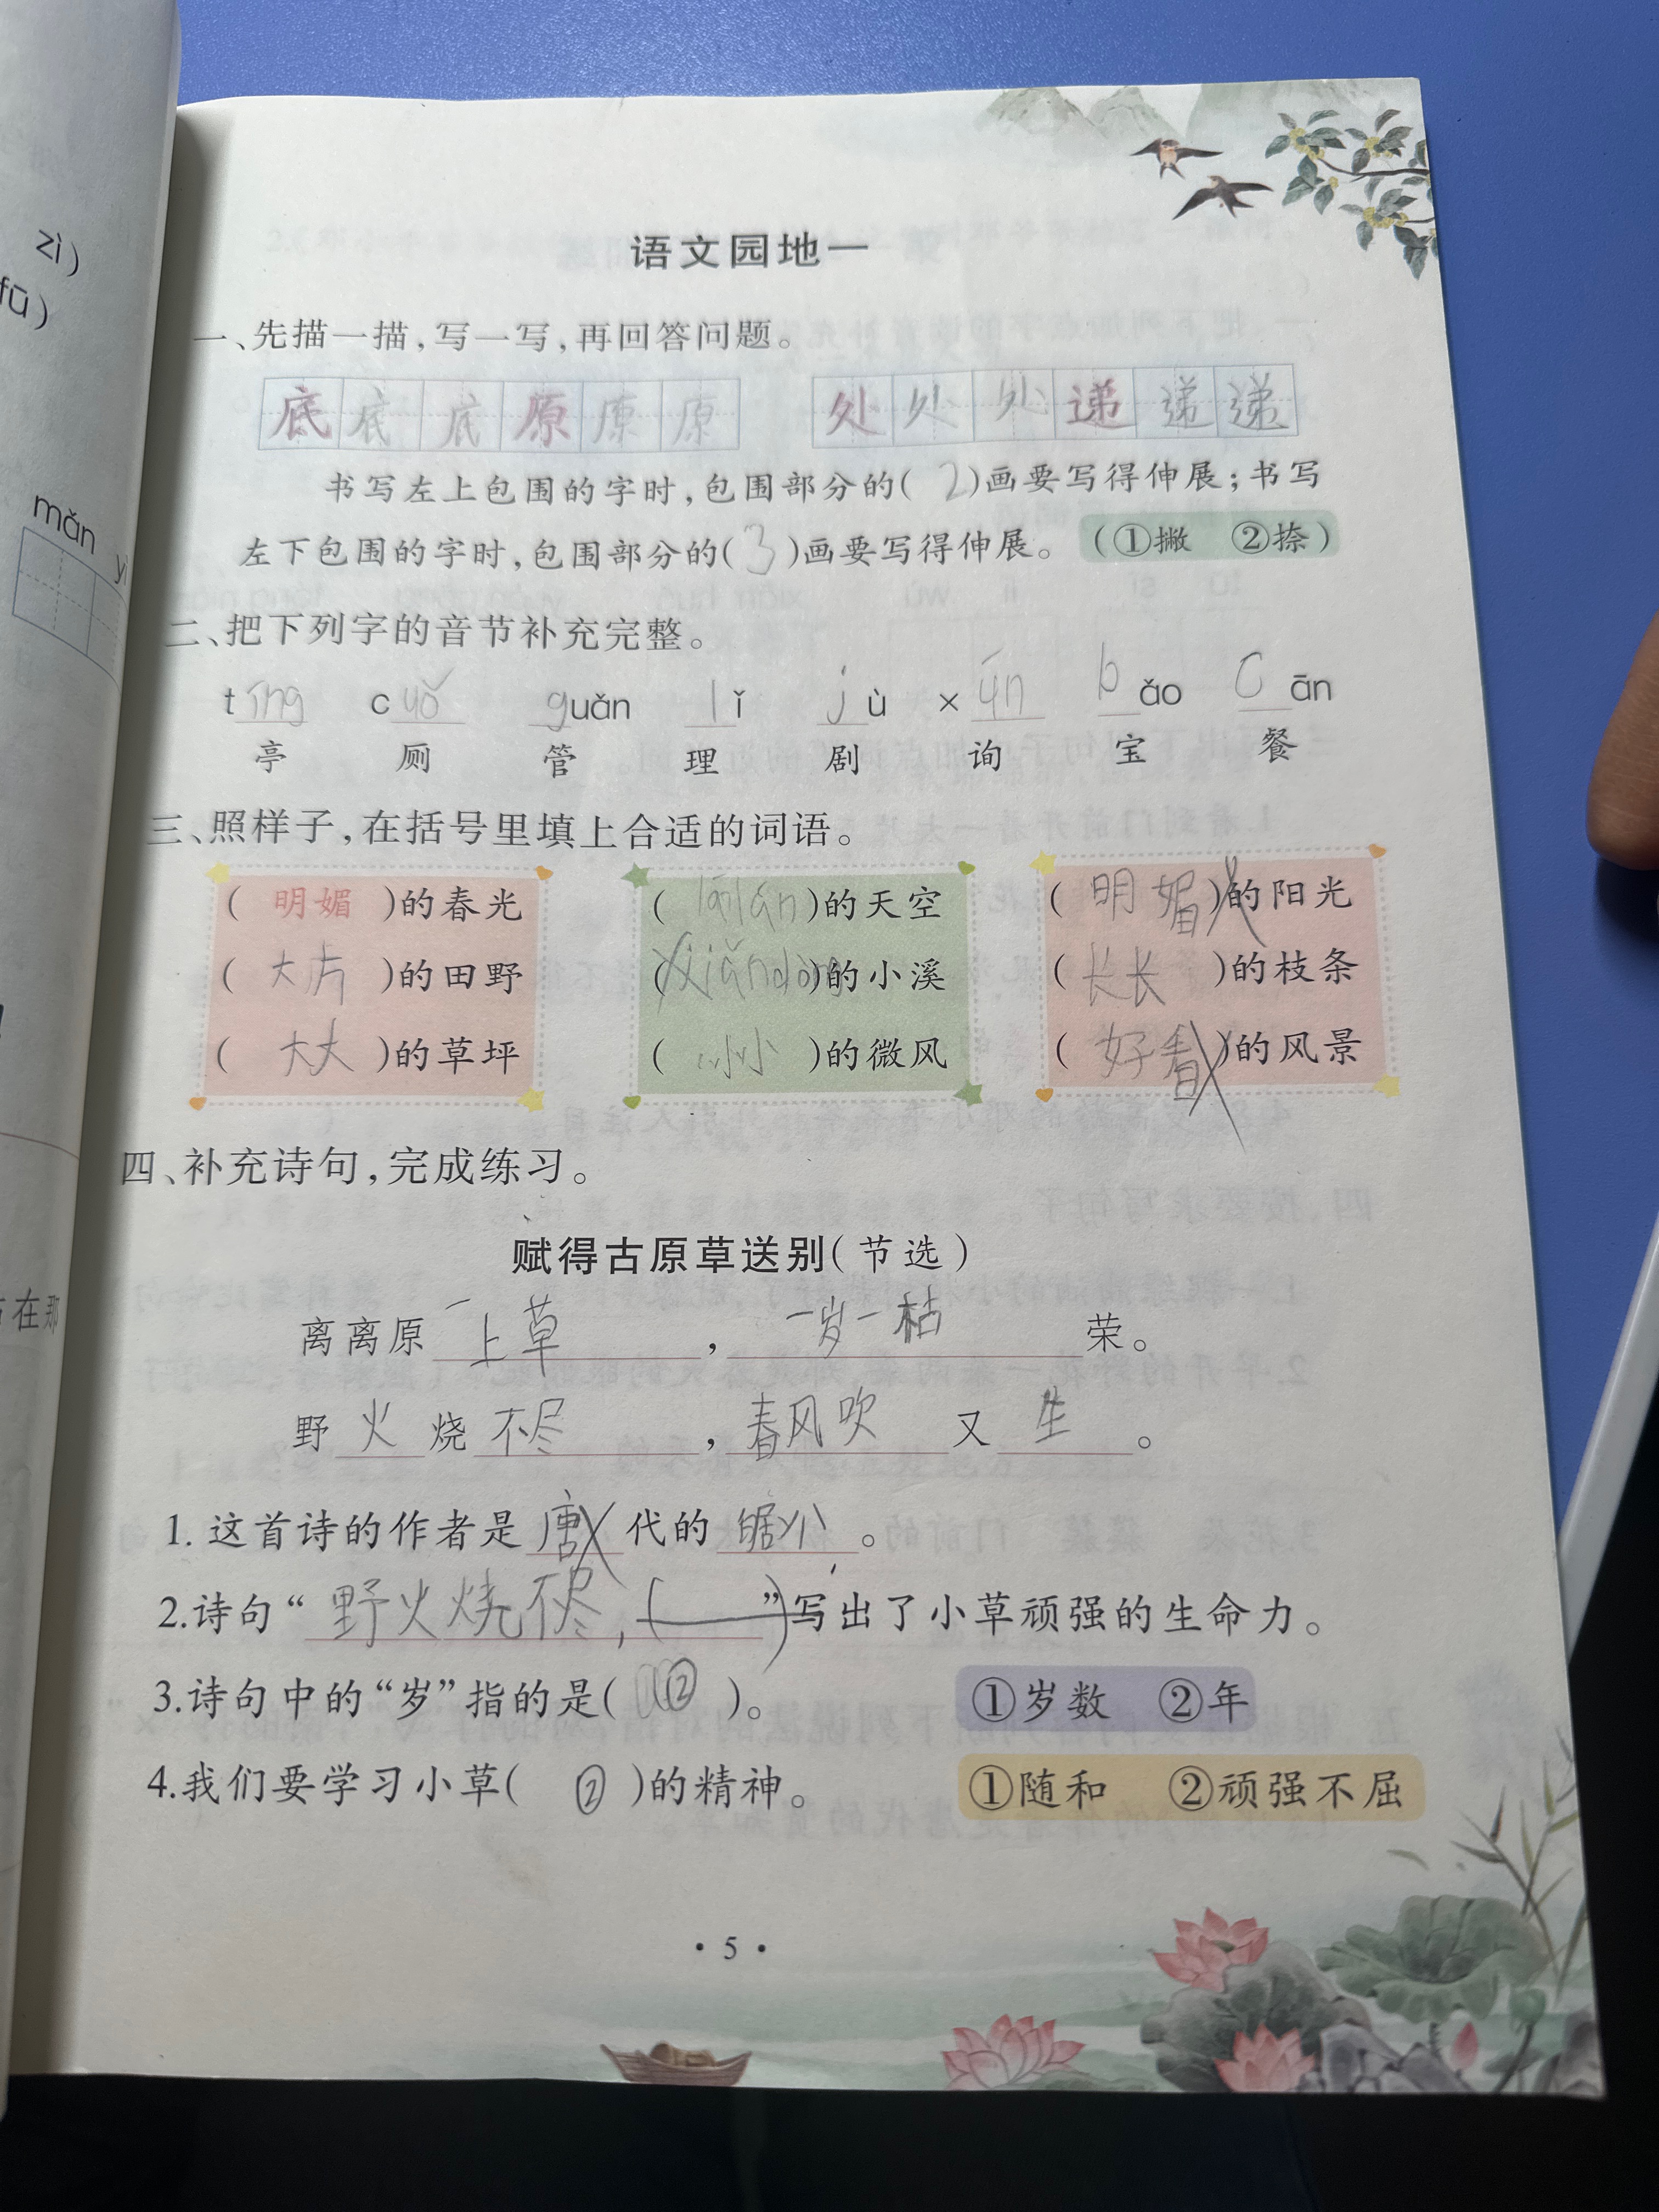 zì)
fū)
mǎn yì
在那
语文园地一
一、先描一描,写一写,再回答问题。
底 底 底 原 原 原 处 处 处 递 递 递
书写左上包围的字时,包围部分的( 2 )画要写得伸展;书写
左下包围的字时,包围部分的( 3 )画要写得伸展。 (①撇 ②捺)
二、把下列字的音节补充完整。
tīng cuǒ guǎn lǐ jù xún bǎo cān
亭 厕 管 理 剧 询 宝 餐
三、照样子,在括号里填上合适的词语。
( 明媚 )的春光 ( lánlán )的天空 ( 明媚 )的阳光
( 大片 )的田野 ( )的小溪 ( 长长 )的枝条
( 大大 )的草坪 ( 小小 )的微风 ( 好看 )的风景
四、补充诗句,完成练习。
赋得古原草送别(节选)
离离原上草,一岁一枯荣。
野火烧不尽,春风吹又生。
1. 这首诗的作者是 唐 代的 。
2.诗句“野火烧不尽,( )”写出了小草顽强的生命力。
3.诗句中的“岁”指的是( ② )。 ①岁数 ②年
4.我们要学习小草( ② )的精神。 ①随和 ②顽强不屈
• 5 •